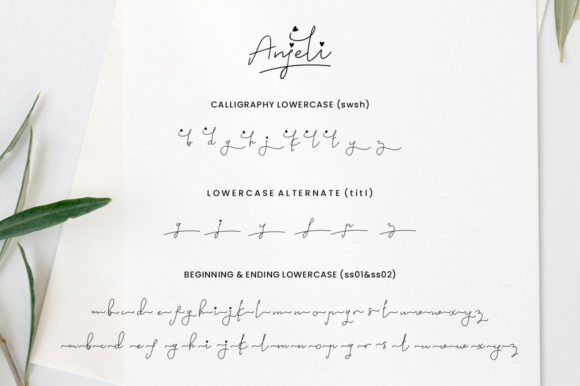 Anjeli
CALLIGRAPHY LOWERCASE (swsh)
b d g h j k l t y z
LOWERCASE ALTERNATE (titl)
g j y f p z
BEGINNING & ENDING LOWERCASE (ss01&ss02)
a b c d e f g h i j k l m n o p q r s t u v w x y z
a b c d e f g h i j k l m n o p q r s t u v w x y z